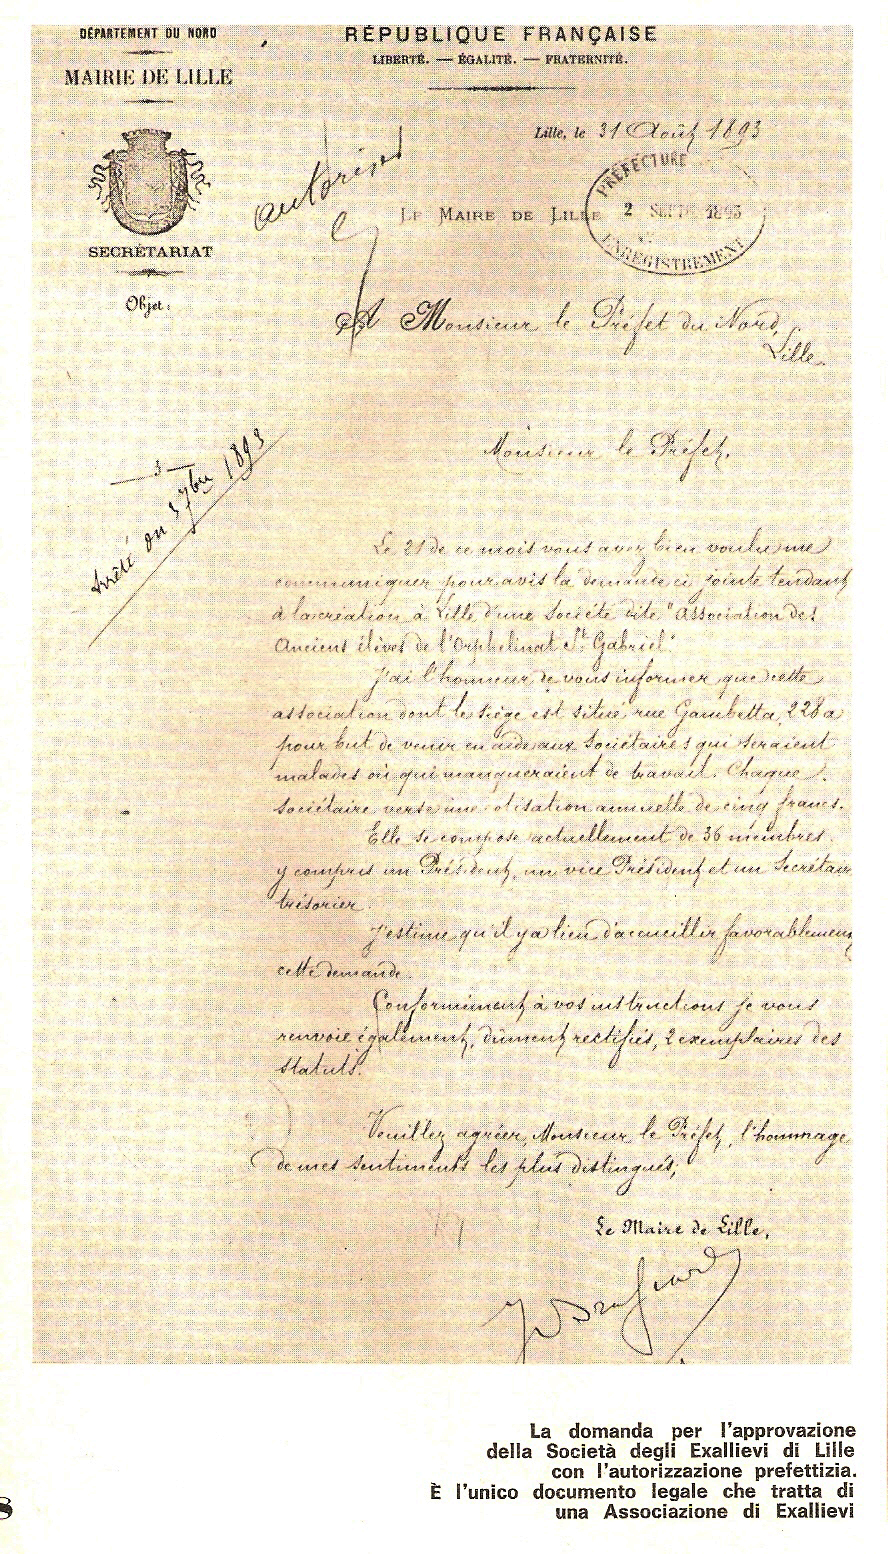 DÉPARTEMENT DU NORD
MAIRIE DE LILLE
SECRÉTARIAT
Objet:
RÉPUBLIQUE FRANÇAISE
LIBERTÉ. — ÉGALITÉ. — FRATERNITÉ.
Lille, le 31 Août 1893
autorisé
LE MAIRE DE LILLE
PRÉFECTURE
2 SEPT 1893
ENREGISTREMENT
A Monsieur le Préfet du Nord,
Lille.
Arrêté du 5 7bre 1893
Monsieur le Préfet,
Le 21 de ce mois vous avez bien voulu me
communiquer pour avis la demande ci jointe tendant
à la création à Lille d'une Société dite "Association des
Anciens élèves de l'Orphelinat St Gabriel"
J'ai l'honneur de vous informer que cette
association dont le siège est situé rue Gambetta, 228 a
pour but de venir en aide aux Sociétaires qui seraient
malades ou qui manqueraient de travail. Chaque
Sociétaire verse une cotisation annuelle de cinq francs.
Elle se compose actuellement de 36 membres
y compris un Président, un vice Président et un Secrétaire
trésorier.
J'estime qu'il y a lieu d'accueillir favorablement
cette demande.
Conformément à vos instructions je vous
renvoie également, dûment rectifiés, 2 exemplaires des
Statuts.
Veuillez agréer, Monsieur le Préfet, l'hommage
de mes sentiments les plus distingués,
Le Maire de Lille,
La domanda per l'approvazione
della Società degli Exallievi di Lille
con l'autorizzazione prefettizia.
È l'unico documento legale che tratta di
una Associazione di Exallievi
8